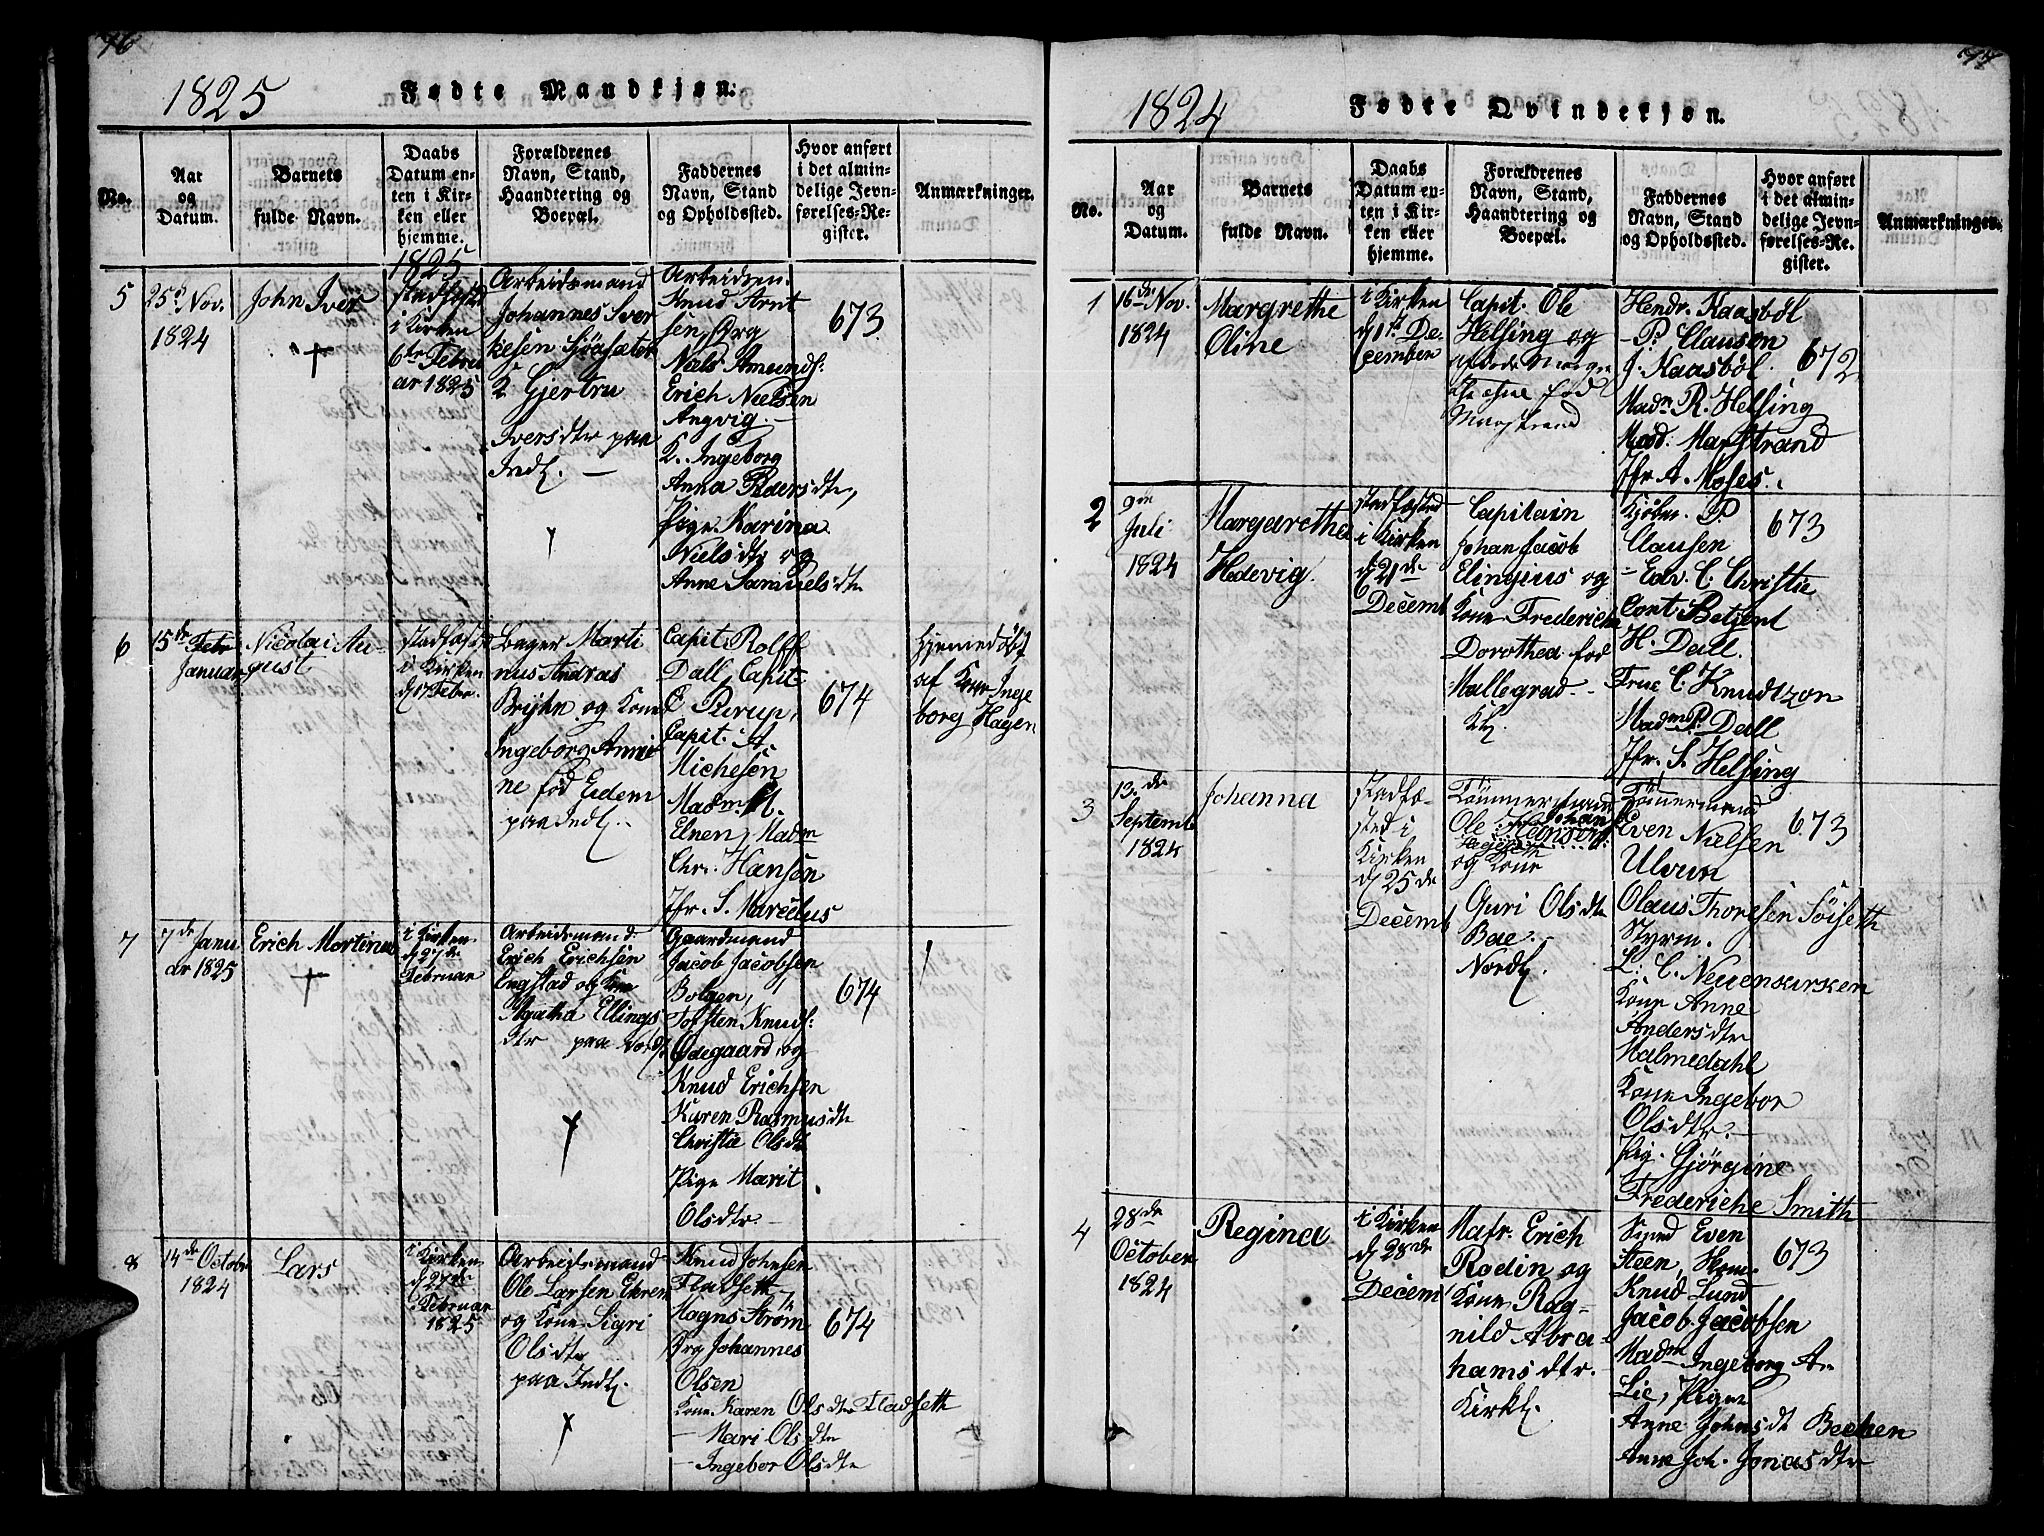 76
1825
Fødte Mandkjøn.
No.
Aar
og
Datum.
Barnets
fulde Navn.
Daabs
Datum en-
ten i Kir-
ken eller
hjemme.
Forældrenes
Navn, Stand,
Haandtering og
Boepæl.
Faddernes
Navn, Stand
og Opholdssted.
Hvor anført
i det almin-
delige Jevn-
førelses-Re-
gister.
Anmærkninger.
5
25de Nov.
1824
John Iver
1825
stadfæstet
i Kirken
6te Febru
ar 1825
Arbeidsmand
Johannes Iver
kesen Sjøasæter
Gjertru
Iversdtr paa
Indl.
Arbeidsm.
Knud Arnt
sen,
Niels Amunds:
Erich Nielsen
Angvig
K. Ingeborg
Anna Pedersdtr,
Pige Karina
Nielsdtr og
Anne Samuelsdtr
673
6
15de Febr
Januar
Nicolai Au-
gust
stadfæstet
i Kirken
d 17 Febr.
Bager Marti
nus Andras
Brÿhn og Kone
Ingeborg Anni
ne fød Eidem
paa Indl.
Capit Rolff
Dall, Capit
E Pirup,
Capit. A
Michesen
Madm. M.
Elnen, Madm
Chr. Hansen
Jfr. S. Marcelus
674
Hjemmedøbt
af Kone Inge
borg Hagen
7
7de Janu
ar 1825
Erich Mortinus
i Kirken
d 27de
Februar
Arbeidsmand
Erich Erichsen
Engstad og Kone
Agatha Ellings
dtr paa Nordl
Gaardmand
Jacob Jacobsen
Bolgen,
Torsten Knuds:
Ødegaard og
Knud Erichsen
Karen Rasmusdtr
Christie Olsdtr
Pige Marit
Olsdtr
674
8
14de October
1824
Lars
i Kirken
d 27de
Februar
1825
Arbeidsmand
Ole Larsen Ekren
og Kone Sigri
Olsdtr
paa Indl.
Knud Johnsen
Fladseth
Mogns Strøm
Johannes
Olsen
Kone Karen Olsdtr Fladseth
— Mari Olsdtr
— Ingebor Olsdtr
674
77
1824
Fødte Qvindekjøn.
No.
Aar
og
Datum.
Barnets
fulde Navn.
Daabs
Datum en-
ten i Kir-
ken eller
hjemme.
Forældrenes
Navn, Stand,
Haandtering og
Boepæl.
Faddernes
Navn, Stand
og Opholdssted.
Hvor anført
i det almin-
delige Jevn-
førelses-Re-
gister.
Anmærkninger.
1
16de Nov.
1824
Margrethe
Oline
i Kirken
d 1ste De
cember
Capit. Ole
Helsing og
fød
Marstrand
Hendr. Kaasbøl
— P. Clauson
J. Kaasbøl.
Madm R. Helsing
Mad. Marstrand
Jfr A. Moses.
672
2
9de
Juli
1824
Margaretha
Hedevig.
stadfæsted
i Kirken
d 21de
Decemb
Capitain
Johan Jacob
Elingius og
Kone Fredericha
Dorothea fød
Mallegrad
Kl.
Kjøbm. P.
Clausen
— Edv. C. Christie
Cont Betzent
H. Dall.
Frue C Knudtzon
Madm P. Dall
Jfr. S. Helsing
673
3
13de
Septemb
1824
Johanna
stadfæ-
sted i
Kirken
d 25de
Decemb
Tømmermand
Ole Johans
og Kone
Guri Olsdtr
Bae
Nordl.
Tømmermand
Even Nielsen
Ulvun
Olaus Thoresen Søiseth
Styrm.
L. C. Neuenkirken
Kone Anne
Andersdtr
Malmedahl
Kone Ingebor
Olsdtr.
Pig. Gjørgine
Frederiche Smith
673
4
28de
October
1824
Regina
i Kirken
d 28de
Decemb
Matr. Erich
Rodin og
Kone Rag-
nild Abra-
hamsdtr.
Kirkl.
Even
Steen,
Knud Lund
Jacob Jacobsen
Madm Ingeborg A
Lie, Pige
Anne Johnsdt Bechen
Anne Joh. Jonasdtr
673